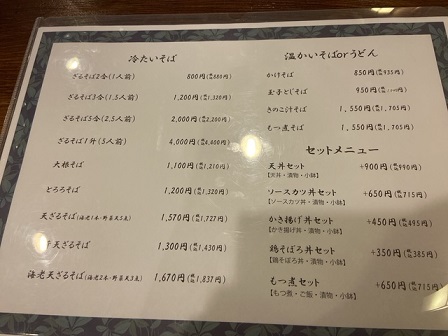 冷たいそば
ざるそば2合(1人前) 800円(税込880円)
ざるそば3合(1.5人前) 1,200円(税込1,320円)
ざるそば5合(2.5人前) 2,000円(税込2,200円)
ざるそば1升(5人前) 4,000円(税込4,400円)
大根そば 1,100円(税込1,210円)
とろろそば 1,200円(税込1,320円)
天ざるそば(海老1本・野菜天5点) 1,570円(税込1,727円)
天ざるそば 1,300円(税込1,430円)
海老天ざるそば(海老2本・野菜天3点) 1,670円(税込1,837円)
温かいそばorうどん
かけそば 850円(税込935円)
玉子とじそば 950円
きのこ汁そば 1,550円(税込1,705円)
もつ煮そば 1,550円(税込1,705円)
セットメニュー
天丼セット +900円(税込990円)
【天丼・漬物・小鉢】
ソースカツ丼セット +650円(税込715円)
【ソースカツ丼・漬物・小鉢】
かき揚げ丼セット +450円(税込495円)
【かき揚げ丼・漬物・小鉢】
鶏そぼろ丼セット +350円(税込385円)
【鶏そぼろ丼・漬物・小鉢】
もつ煮セット +650円(税込715円)
【もつ煮・ご飯・漬物・小鉢】